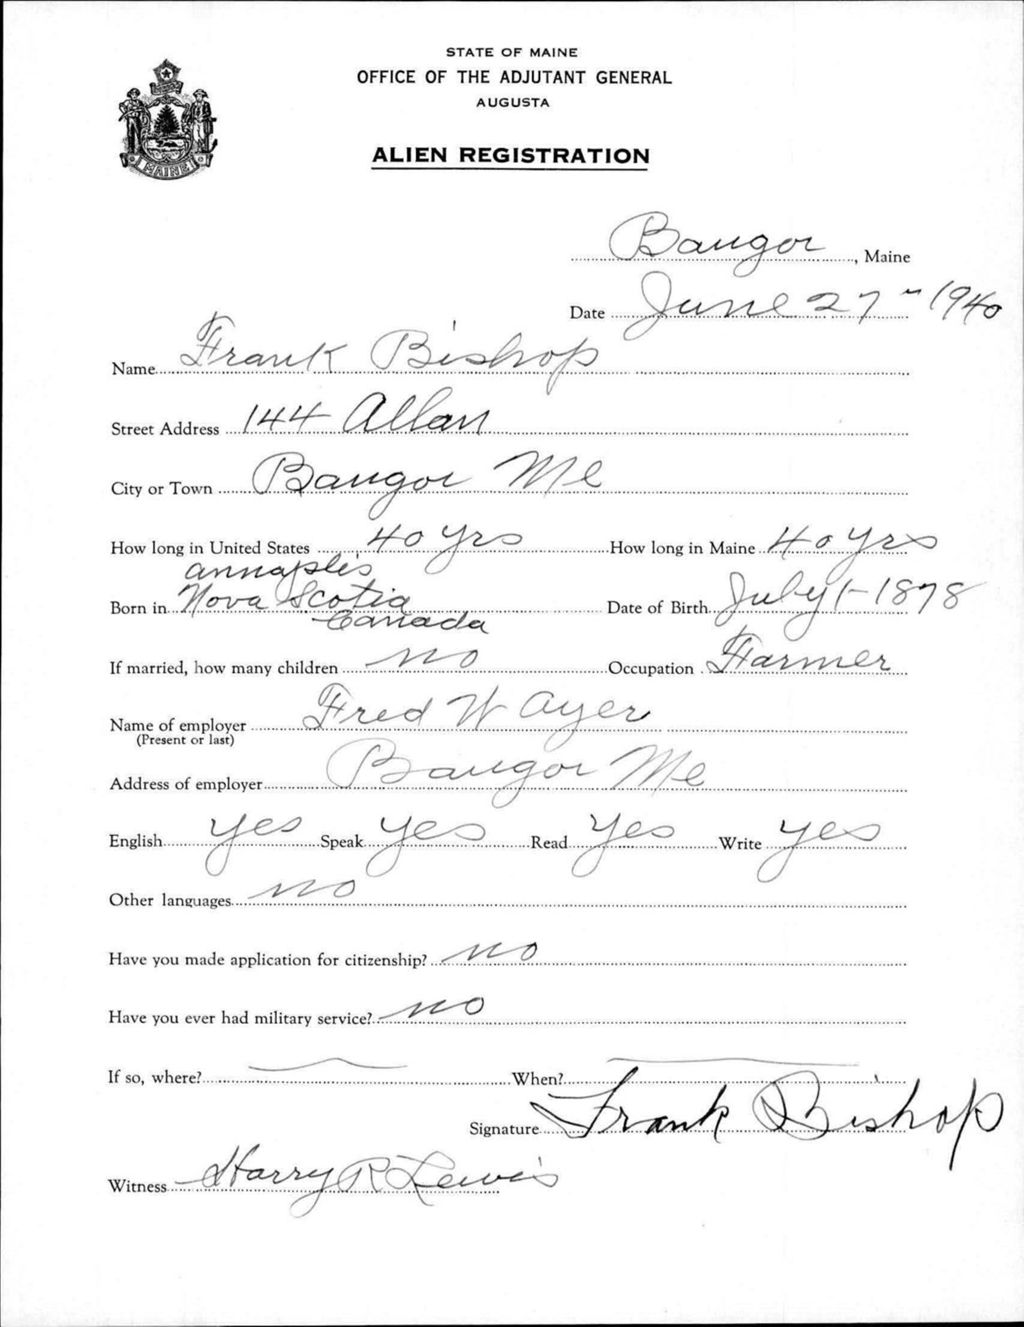 STATE OF MAINE
OFFICE OF THE ADJUTANT GENERAL
AUGUSTA
ALIEN REGISTRATION
MAINE
Bangor, Maine
Date June 27" 1940
Name Frank Bishop
Street Address 144 Allan
City or Town Bangor Me
How long in United States 40 yrs How long in Maine 40 yrs
annaplis
Born in Nova Scotia Date of Birth July 1-1878
Canada
If married, how many children no Occupation Farmer
Name of employer Fred W Ayer
(Present or last)
Address of employer Bangor Me
English yes Speak yes Read yes Write yes
Other languages no
Have you made application for citizenship? no
Have you ever had military service? no
If so, where? When?
Signature Frank Bishop
Witness Harry R Lewis